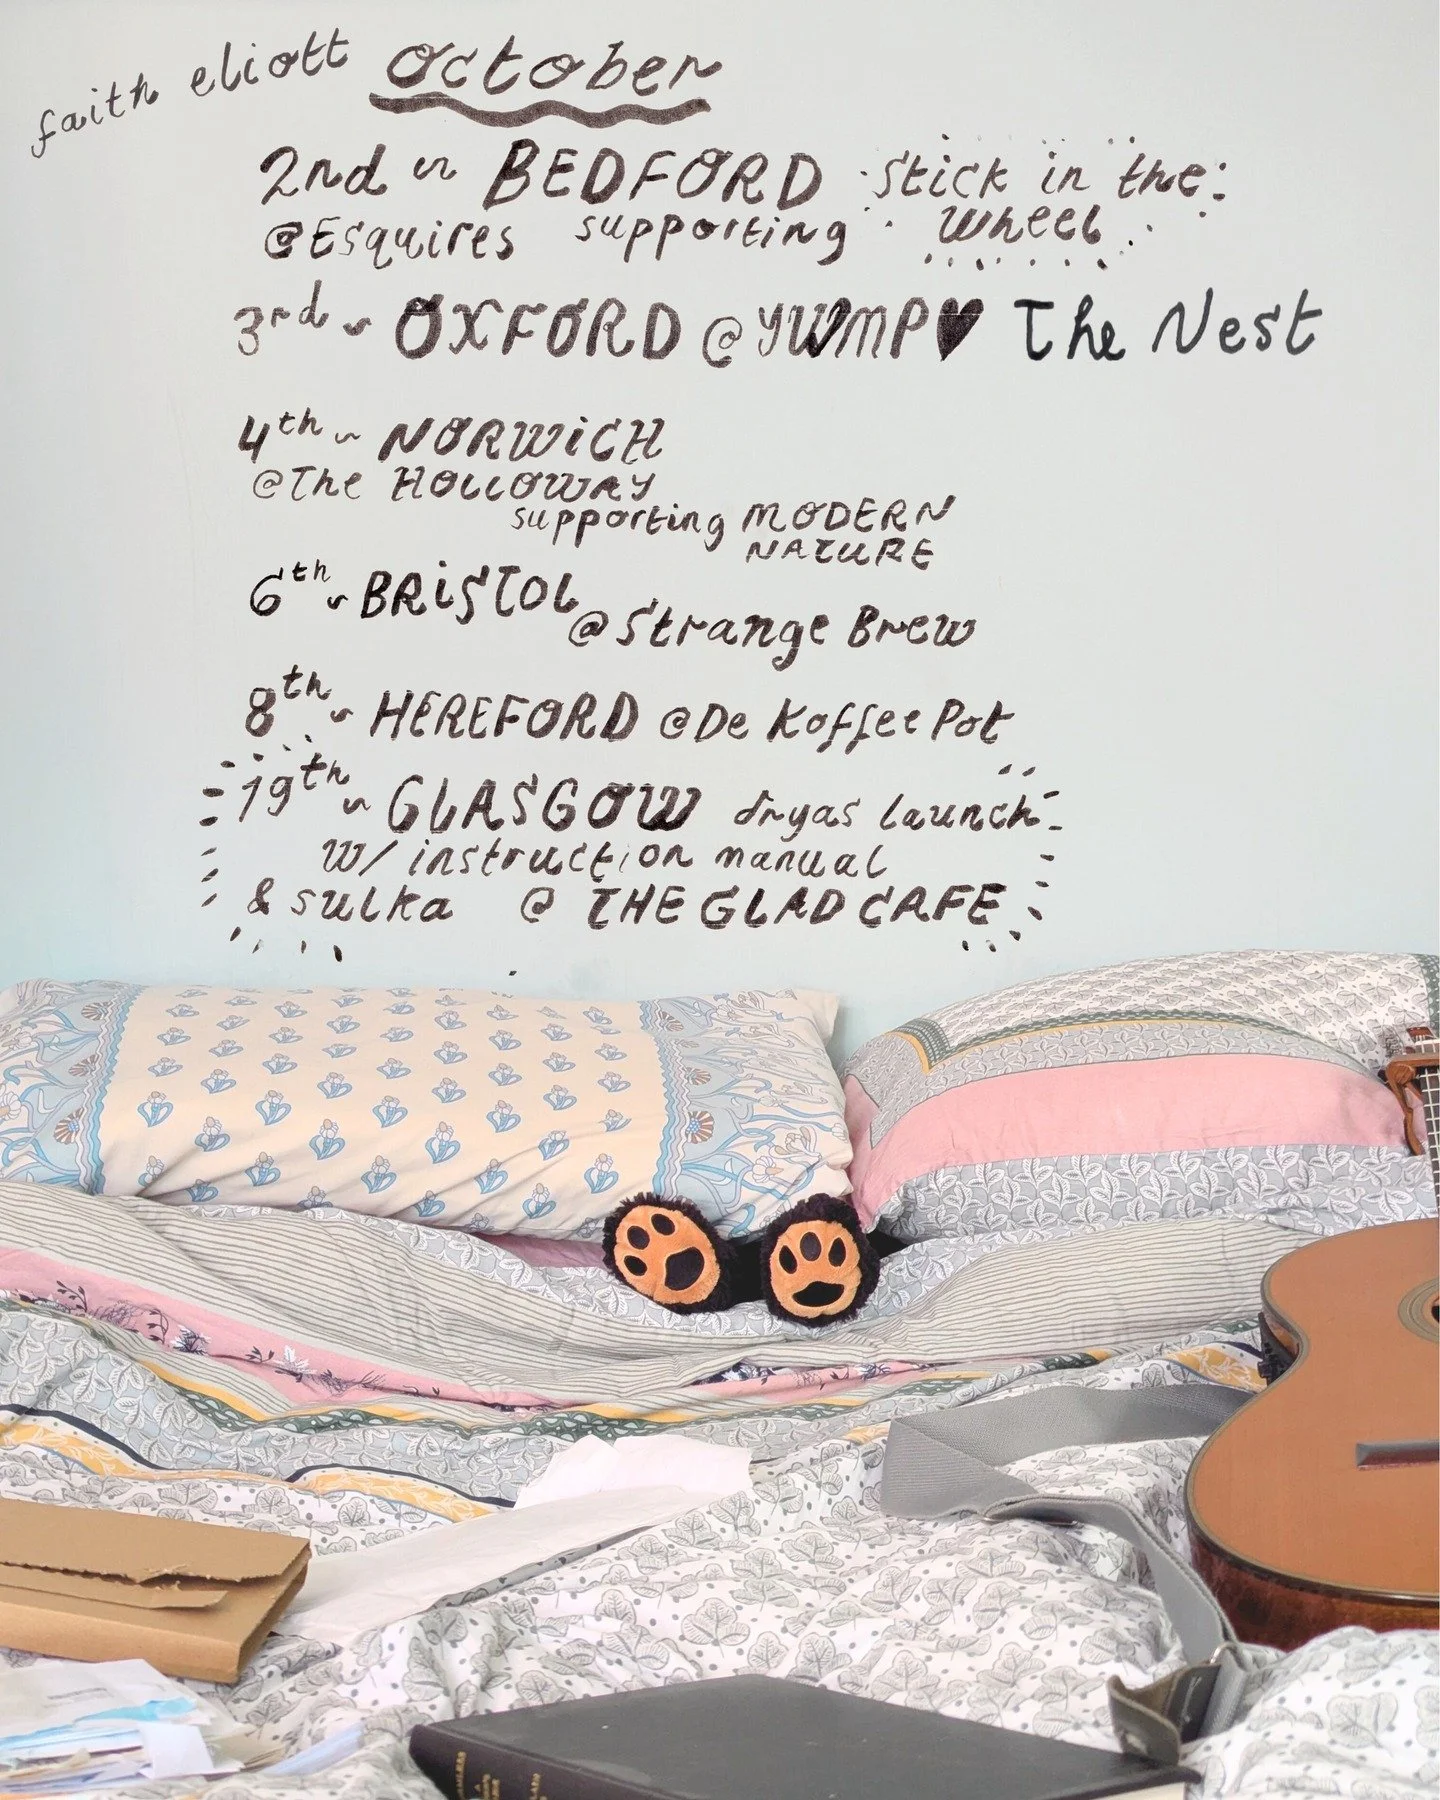 faith eliott
October
2nd ~ BEDFORD
@Esquires supporting Stick in the Wheel
3rd ~ OXFORD @ YWMP♥ The Nest
4th ~ NORWiCH
@The HOLLOWAY
supporting MODERN
NATURE
6th ~ BRiSTOL
@Strange Brew
8th ~ HEREFORD @De Koffee Pot
19th ~ GLASGOW dryas launch
w/ instruction manual
& sulka @ THE GLAD CAFE